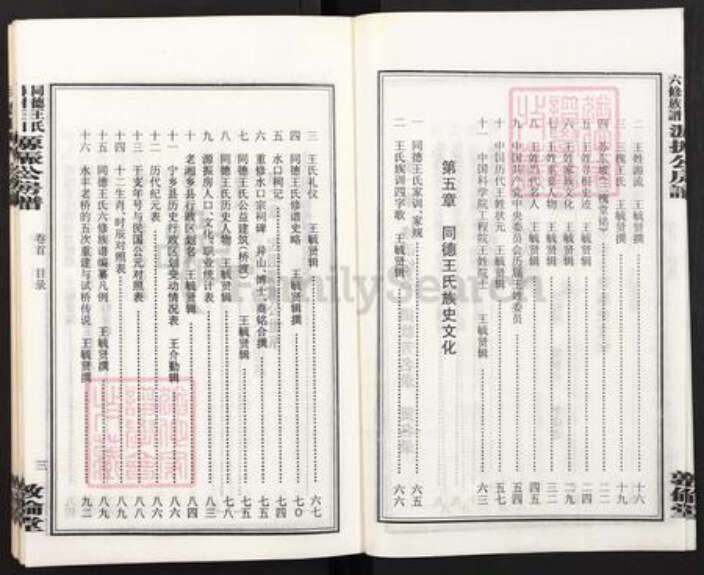 六修族谱 源振公房谱
二 王姓源流 王毓贤撰 十六
三 三槐王氏 王毓贤撰 十九
四 苏东坡《三槐堂铭》 二二
五 王姓寻根史迹 王毓贤辑 二四
六 王姓家族文化 王毓贤辑 二九
七 王姓重要人物 王毓贤辑 三二
八 王姓当代名人 王毓贤辑
九 中国共产党中央委员会历届王姓委员 五四
十 中国历代王姓状元 王毓贤辑 五五
十一 中国科学院工程院王姓院士 王毓贤辑 六三
第五章 同德王氏族史文化
一 同德王氏家训、家规 六五
二 王氏族训四字歌 王毓贤辑 六六
敦伦堂
三 王氏礼仪 王毓贤辑 六七
四 同德王氏修谱史略 王毓贤辑撰 七〇
五 水口祠记 七四
六 重修水口宗祠碑 异山、博士、商铭合撰 七五
七 同德王氏公益建筑(桥渡) 王毓贤辑 七六
八 同德王氏历史人物 王毓贤辑 七八
九 源振房人口、文化、职业统计表 八三
十 老湘乡县行政区划名 王毓贤辑 八四
十一 宁乡县历史行政区划变动情况表 王介勤辑 八六
十二 历代纪元表 八六
十三 干支年号与民国公元对照表 八八
十四 十二生肖、时辰对照表 八九
十五 同德王氏六修族谱编纂凡例 王毓贤撰 八九
十六 永丰老桥的五次重建与试桥传说 王毓贤撰 九二
同德王氏 源振公房谱
卷首 目录
三
敦伦堂
FamilySearch